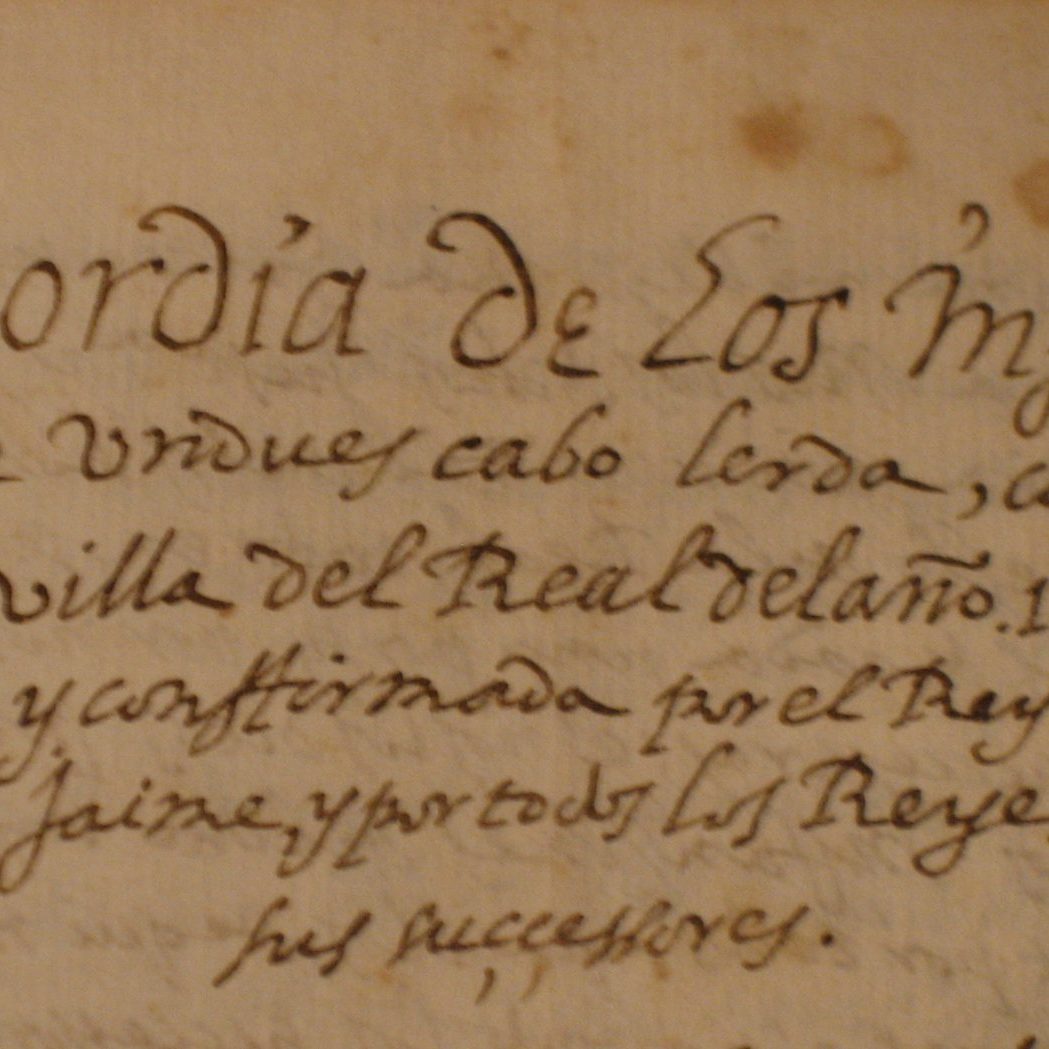 ordia de Los
Vndues cabo lerda,
villa del Real delaño. 1
y conffirmada por el Rey
Jaime, y por todos los Reye
sus sucçessores.